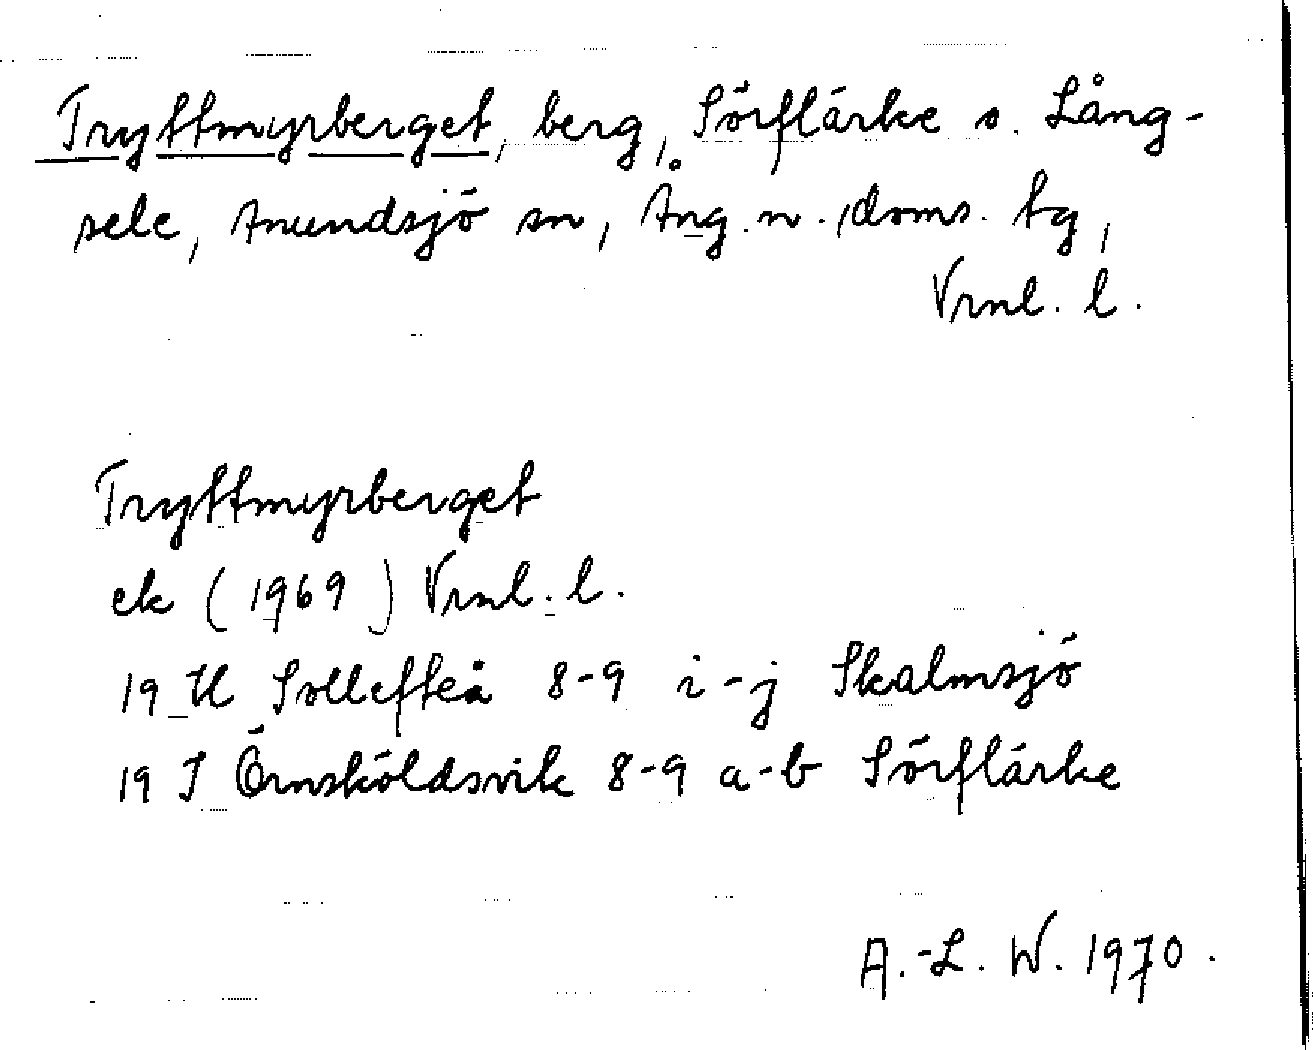 Tryttmyrberget, berg, Sörflärke o. Lång-
sele, Anundsjö sn, Ång. n., doms. tg,
Vrnl. l.
Tryttmyrberget
ek (1969) Vrnl. l.
19 H Sollefteå 8-9 i-j Skalmsjö
19 I Örnsköldsvik 8-9 a-b Sörflärke
A.-L. W. 1970.